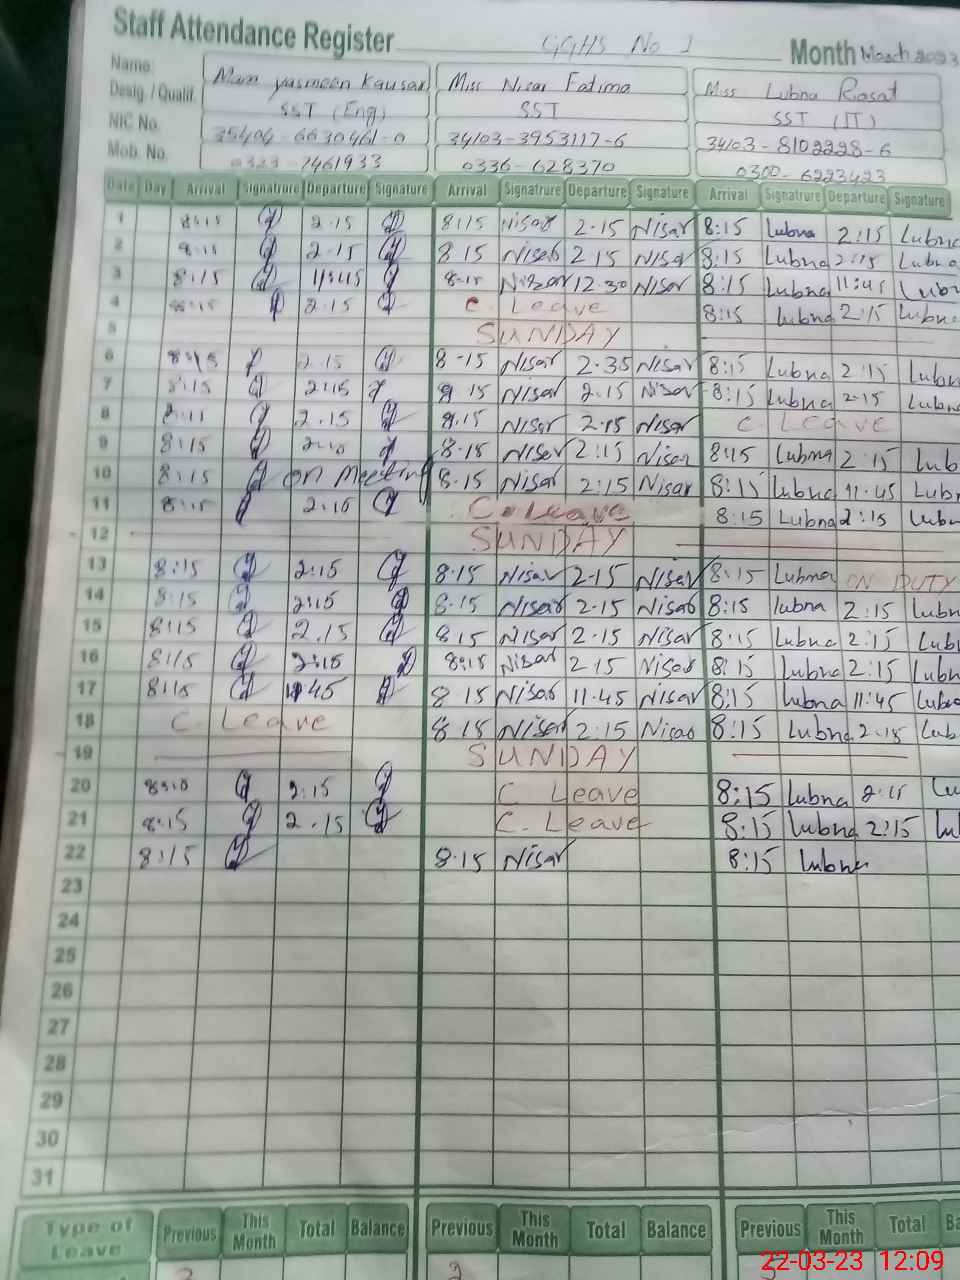 Staff Attendance Register GGHS No 1 Month March 2023
Name: Mam yasmeen Kausar Miss Nisar Fatima Miss Lubna Riasat
Desig. / Qualif. SST (Eng) SST SST (IT)
NIC No. 35404-6630461-0 34103-3953117-6 34103-8102228-6
Mob. No. 0323-7461933 0336-628370 0300-6223423
Date Day Arrival Signatrure Departure Signature Arrival Signatrure Departure Signature Arrival Signatrure Departure Signature
1 8:15 2.15 8:15 Nisar 2.15 Nisar 8:15 Lubna 2:15 Lubna
2 8:11 2.15 8 15 Nisar 2 15 Nisar 8:15 Lubna 2:15 Lubna
3 8:15 11:45 Nisar 12.30 Nisar 8:15 Lubna 11:45 Lubn
4 8:15 2.15 C. Leave 8:15 Lubna 2:15 Lubna
5 SUNDAY
6 8:15 2.15 8-15 Nisar 2.35 Nisar 8:15 Lubna 2:15 Lubn
7 8:15 2:15 8 15 Nisar 2.15 Nisar 8:15 Lubna 2.15 Lubn
8 8:11 2.15 8.15 Nisar 2.15 Nisar C Leave
9 8:15 8.15 Nisar 2:15 Nisar 8:15 Lubna 2:15 Lub
10 8:15 on Meeting 8.15 Nisar 2:15 Nisar 8:15 Lubna 11.45 Lubn
11 8:15 2:10 C. Leave 8:15 Lubna 2:15 Lubn
12 SUNDAY
13 8:15 2:15 8.15 Nisar 2.15 Nisar 8:15 Lubna ON DUTY
14 8:15 2:15 8.15 Nisar 2.15 Nisar 8:15 lubna 2:15 Lubn
15 8:15 2.15 8.15 Nisar 2.15 Nisar 8:15 Lubna 2:15 Lubn
16 8:15 2:15 8:15 Nisar 2.15 Nisar 8:15 Lubna 2:15 Lubn
17 8:15 11:45 8 15 Nisar 11.45 Nisar 8:15 Lubna 11:45 Lubn
18 C. Leave 8 15 Nisar 2:15 Nisar 8:15 Lubna 2.15 Lub
19 SUNDAY
20 2:15 C Leave 8:15 Lubna 2:15 Lu
21 8:15 2.15 C. Leave 8:15 Lubna 2:15 Lu
22 8:15 8.15 Nisar 8:15 Lubna
23
24
25
26
27
28
29
30
31
Type of Leave Previous This Month Total Balance Previous This Month Total Balance Previous This Month Total Ba
2
22-03-23 12:09